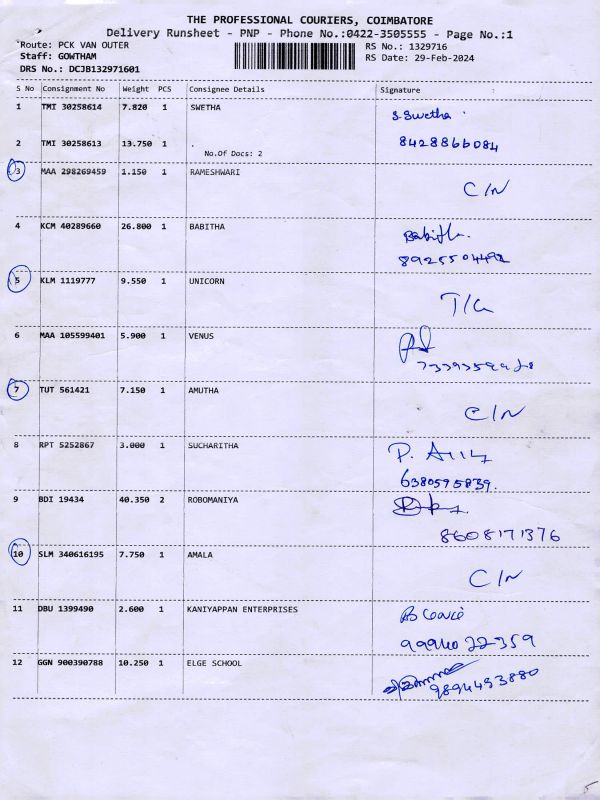 THE PROFESSIONAL COURIERS, COIMBATORE
Delivery Runsheet - PNP - Phone No.:0422-3505555 - Page No.:1
Route: PCK VAN OUTER RS No.: 1329716
Staff: GOWTHAM RS Date: 29-Feb-2024
DRS No.: DCJB132971601
S No Consignment No Weight PCS Consignee Details Signature
1 TMI 30258614 7.820 1 SWETHA S. Swetha
2 TMI 30258613 13.750 1 . 8428866084
No.Of Docs: 2
3 MAA 298269459 1.150 1 RAMESHWARI
C/N
4 KCM 40289660 26.800 1 BABITHA Babitha
8925504492
5 KLM 1119777 9.550 1 UNICORN
T/G
6 MAA 105599401 5.900 1 VENUS
7 TUT 561421 7.150 1 AMUTHA
C/N
8 RPT 5252867 3.000 1 SUCHARITHA P.
6380595839.
9 BDI 19434 40.350 2 ROBOMANIYA
8608171376
10 SLM 340616195 7.750 1 AMALA
C/N
11 DBU 1399490 2.600 1 KANIYAPPAN ENTERPRISES
9994022359
12 GGN 900390788 10.250 1 ELGE SCHOOL
9894493880